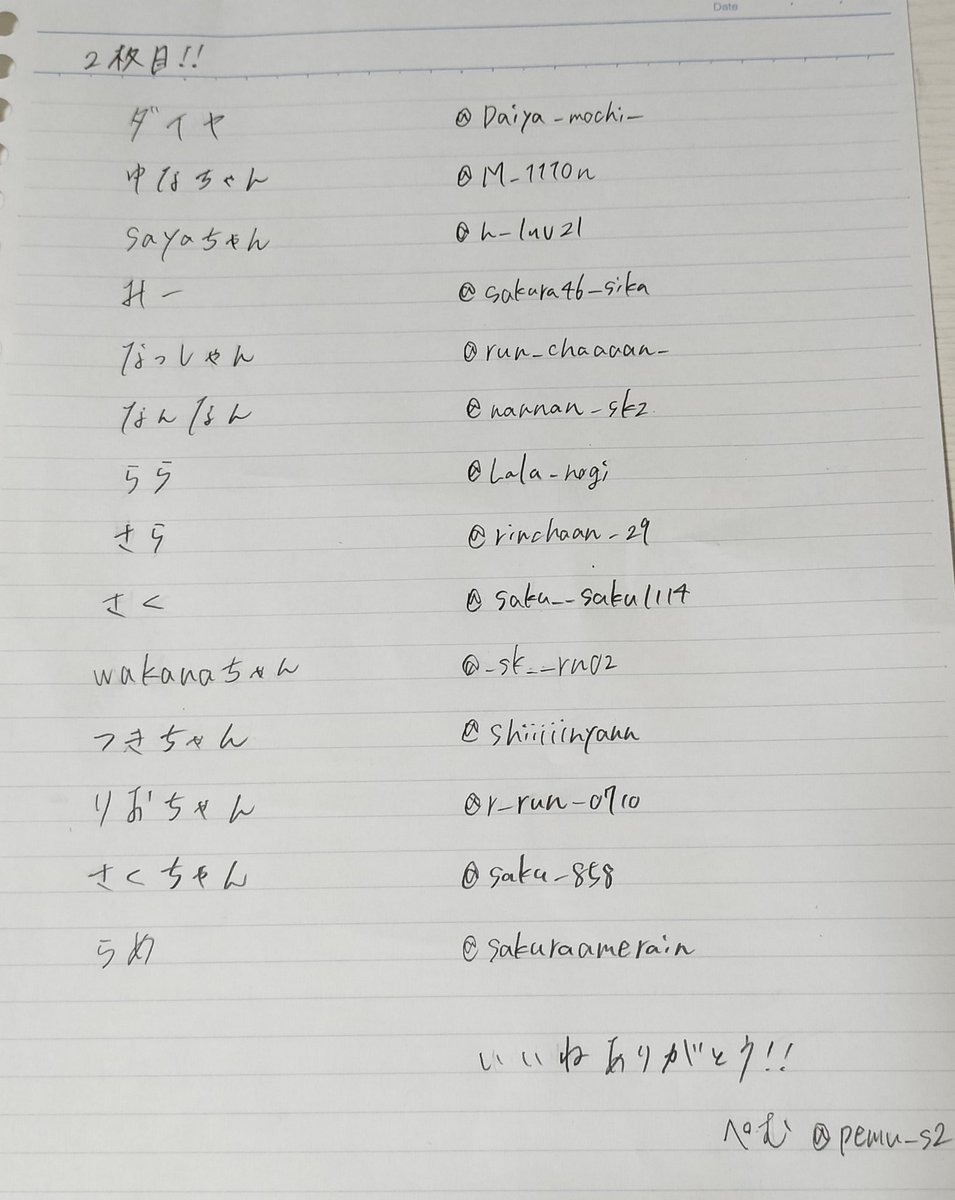 Date
2枚目!!
ダイヤ @Daiya_mochi_
ゆなちゃん @M_1110n
sayaちゃん @h_luv21
みー @sakura46_sika
なっしゃん @run_chaaaan_
なんなん @nannan_sk2
らら @Lala_nogi
さら @rinchaan_29
さく @saku__saku1114
wakanaちゃん @_sk__rn02
つきちゃん @shiiiiinyann
りおちゃん @r_run_0710
さくちゃん @saku_858
らめ @sakuraamerain
いいねありがとう!!
ぺむ @pemu_s2